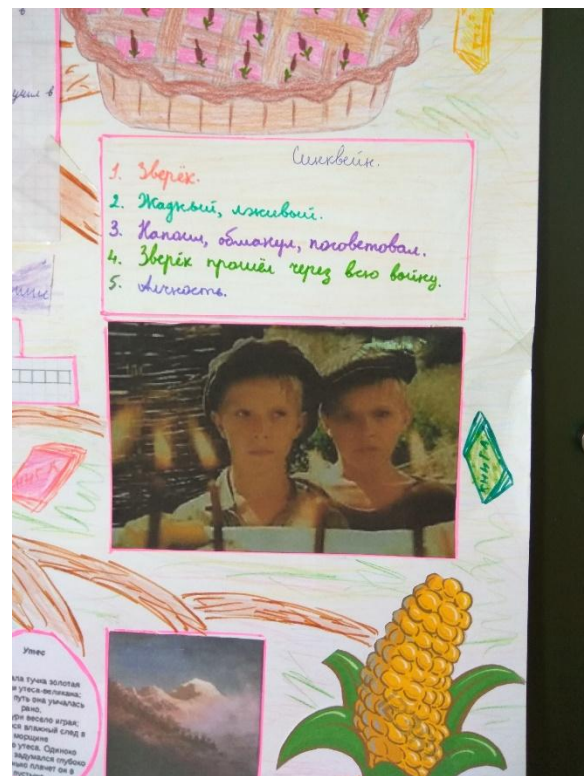 Синквейн.
1. Зверёк.
2. Жадный, лживый.
3. Напоил, обманул, посоветовал.
4. Зверёк прошёл через всю войну.
5. Алчность.
Утес
ла тучка золотая
утеса-великана;
путь она умчалась
рано,
весело играя;
ся влажный след в
морщине
утеса. Одиноко
задумался глубоко
плачет он в